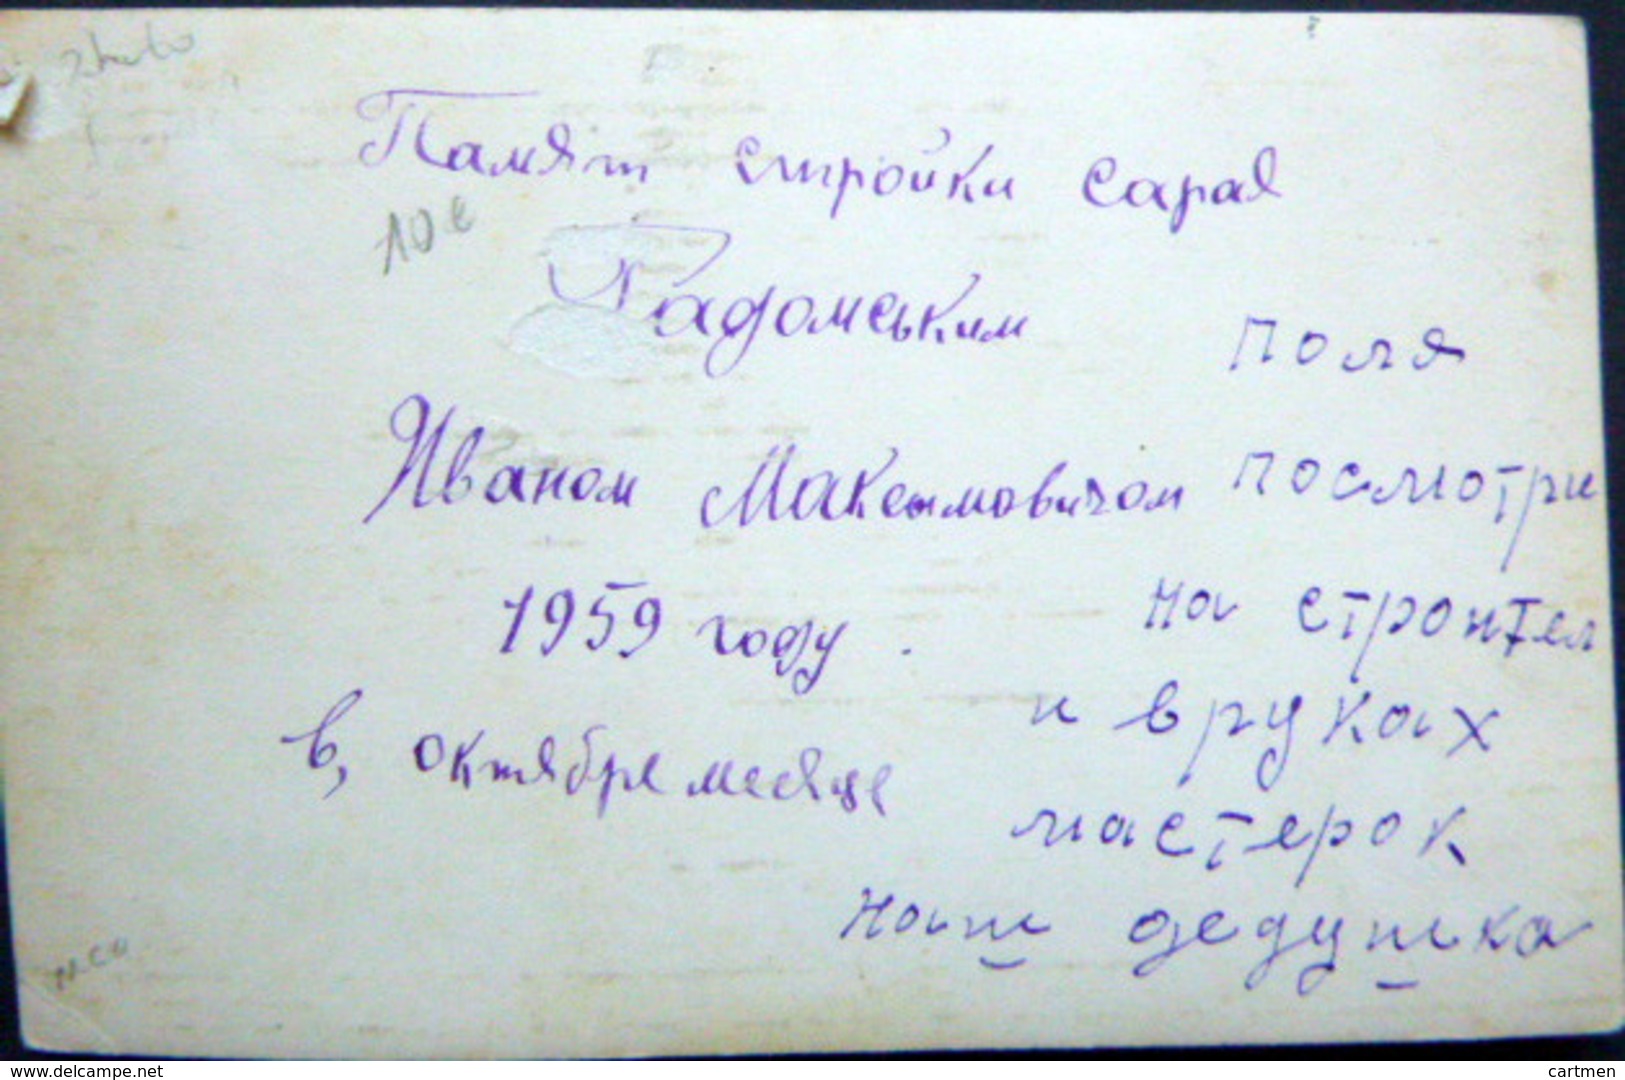 Памят стройки сарая
10 €
Радомським
Иваном Максимовичом
1959 году.
в, октябре месяце
Поля
посмотри
на строител
и в руках
мастерок
наш дедушка
www.delcampe.net
cartmen